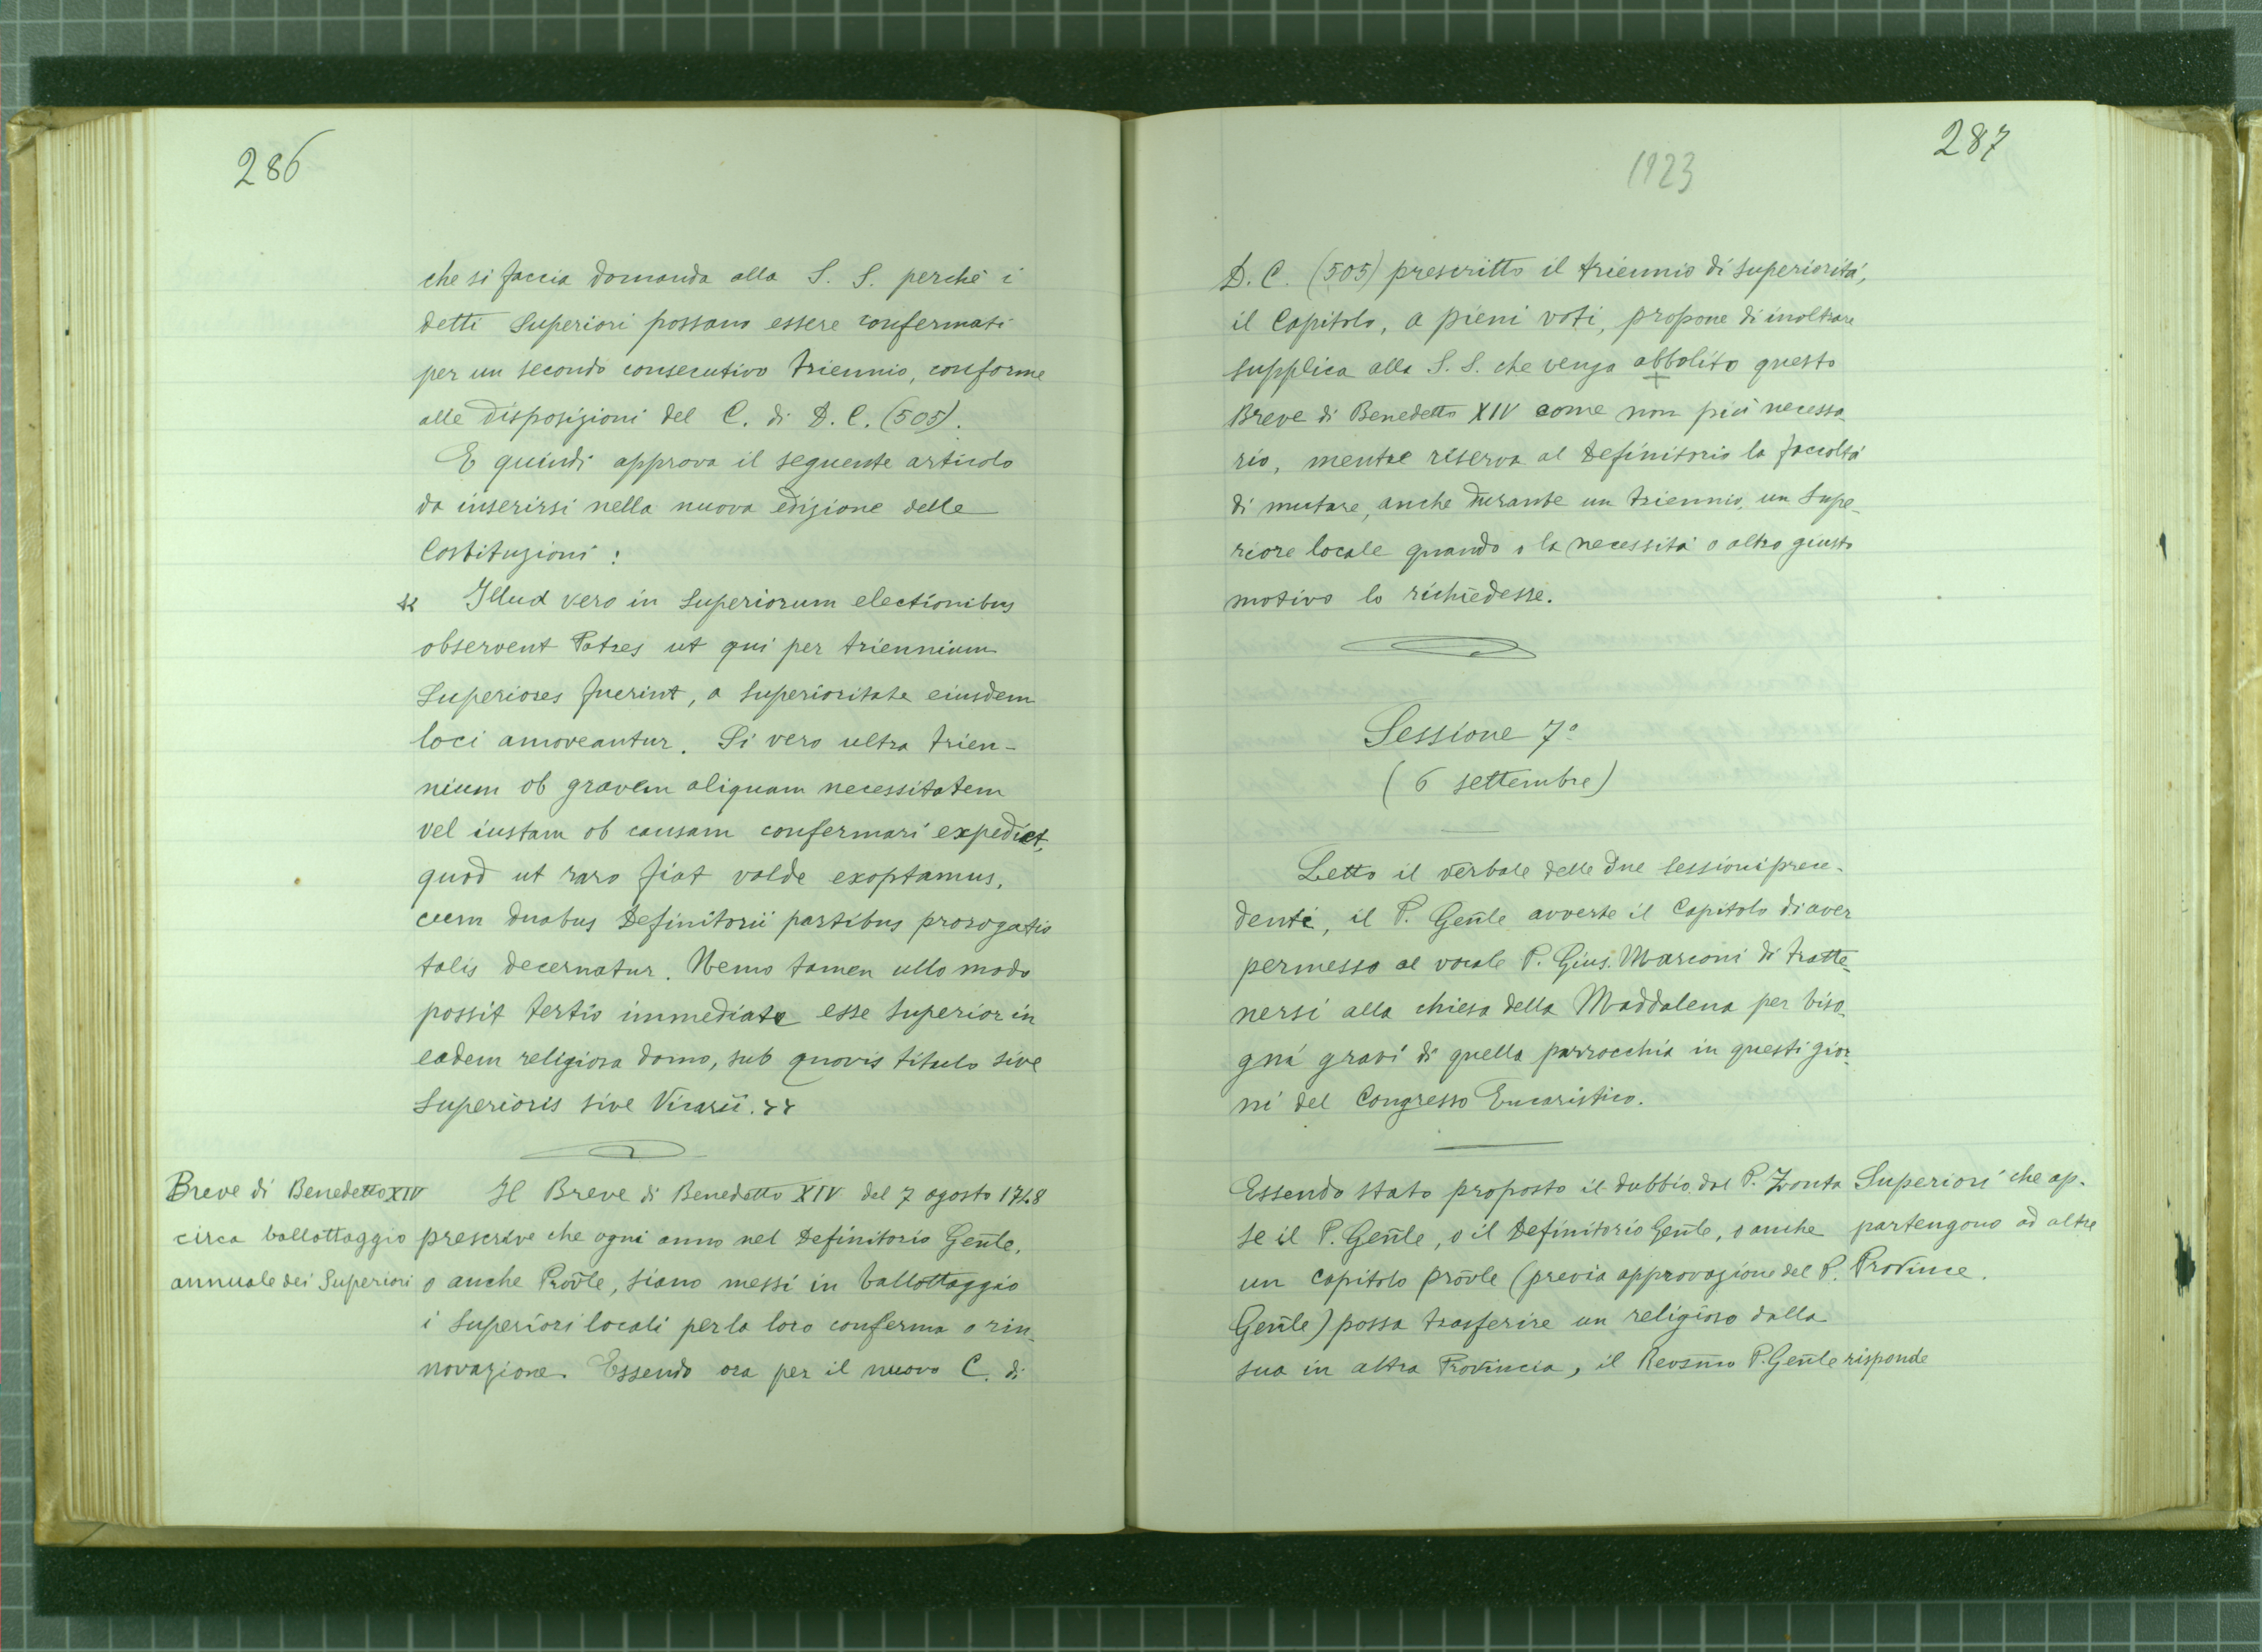 286
che si faccia domanda alla S. S. perchè i
detti Superiori possano essere confermati
per un secondo consecutivo triennio, conforme
alle disposizioni del C. di D. C. (505).
E quindi approva il seguente articolo
da inserirsi nella nuova edizione delle
Costituzioni:
« Illud vero in Superiorum electionibus
observent Patres ut qui per triennium
Superiores fuerint, a superioritate eiusdem
loci amoveantur. Si vero ultra trien-
nium ob gravem aliquam necessitatem
vel iustam ob causam confermari expediet,
quod ut raro fiat valde exoptamus,
cum duabus Definitorii partibus prorogatio
talis decernatur. Nemo tamen ullo modo
possit tertio immediate esse superior in
eadem religiosa domo, sub quovis titulo sive
Superioris sive Vicarii. »
Breve di Benedetto XIV
circa ballottaggio
annuale dei Superiori
Il Breve di Benedetto XIV del 7 agosto 1748
prescrive che ogni anno nel Definitorio Gen̄le,
o anche Prov̄le, siano messi in ballottaggio
i Superiori locali per la loro conferma o rin-
novazione. Essendo ora per il nuovo C. di
287
1923
D. C. (505) prescritto il triennio di superiorità,
il Capitolo, a pieni voti, propone di inoltrare
supplica alla S. S. che venga abbolito questo
Breve di Benedetto XIV come non più necessa-
rio, mentre riserva al Definitorio la facoltà
di mutare, anche durante un triennio, un Supe-
riore locale quando o la necessità o altro giusto
motivo lo richiedesse.
Sessione 7ª
(6 settembre)
Letto il verbale delle due sessioni prece-
denti, il P. Gen̄le avverte il Capitolo di aver
permesso al vocale P. Gius. Marconi di tratte-
nersi alla chiesa della Maddalena per biso-
gni gravi di quella parrocchia in questi gior-
ni del Congresso Eucaristico.
Essendo stato proposto il dubbio dal P. Zonta
se il P. Gen̄le, o il Definitorio Gen̄le, o anche
un capitolo prov̄le (previa approvazione del P.
Gen̄le) possa trasferire un religioso dalla
sua in altra Provincia, il Revsm̄o P. Gen̄le risponde
Superiori che ap-
partengono ad altre
Provincie.